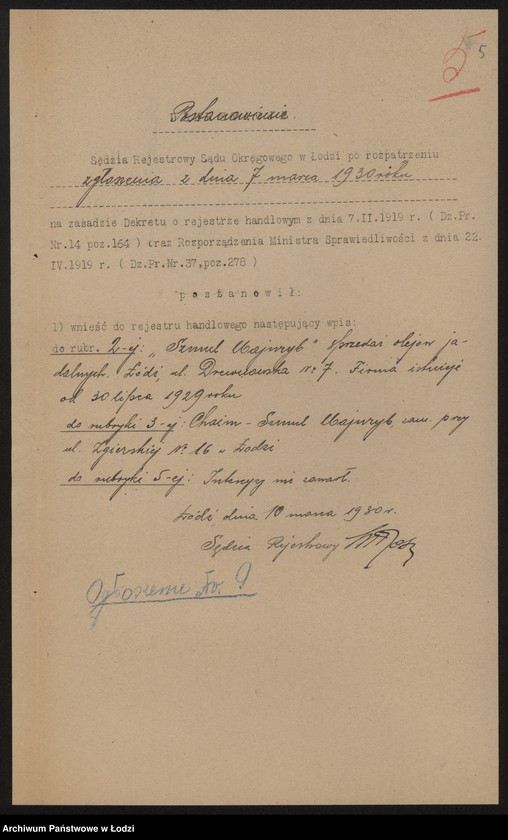 5
5
Postanowienie.
Sędzia Rejestrowy Sądu Okręgowego w Łodzi po rozpatrzeniu
zgłoszenia z dnia 7 marca 1930 roku
na zasadzie Dekretu o rejestrze handlowym z dnia 7.II.1919 r. ( Dz.Pr.
Nr.14 poz.164 ) oraz Rozporządzenia Ministra Sprawiedliwości z dnia 22.
IV.1919 r. ( Dz.Pr.Nr.37,poz.278 )
p o s t a n o w i ł:
1) wnieść do rejestru handlowego następujący wpis:
do rubr. 2-ej: „Szmul Majnzyb" sprzedaż olejów ja-
dalnych. Łódź, ul. Drewnowska № 7. Firma istnieje
od 30 lipca 1929 roku
do rubryki 3-ej: Chaim-Szmul Majnzyb, zam. przy
ul. Zgierskiej № 16 w Łodzi
do rubryki 5-ej: Intercyzy nie zawarł.
Łódź, dnia 10 marca 1930 r.
Sędzia Rejestrowy
Ogłoszenie
Archiwum Państwowe w Łodzi